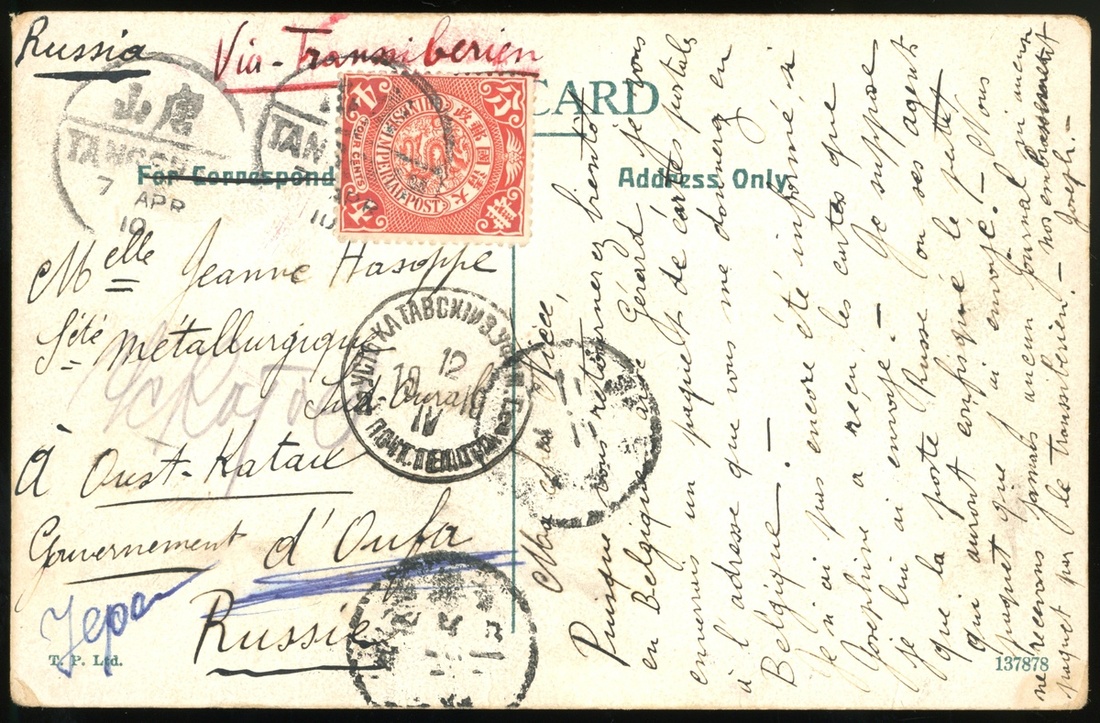 Russia
Via-Transsiberien
CARD
For Correspond
Address Only
山唐
TANGSH
7
APR
10
TAN
10
4
分
FOUR CENTS
CHINESE IMPERIAL POST
大清國郵政
Melle Jeanne Hasoppe
Sété Métallurgique
Sud-Oural
à Oust-Kataw
Gouvernement d'Oufa
Russie
УСТЬ КАТАВСКІЙ З. УФИМ
12
IV
ПОЧТ. ТЕЛ. ОТД.
T. P. Ltd.
137878
Ma chère Nièce,
Puisque vous retournerez bientôt
en Belgique avec Gérard je vous
enverrais un paquet de cartes postales
à l'adresse que vous me donnerez en
Belgique. —
Je n'ai pas encore été informé si
Joséphine a reçu les cartes que
je lui ai envoyé. — Je suppose
que la poste Russe ou ses agents
qui auront confisqué le petit
paquet que j'ai envoyé. — Nous
ne recevons jamais aucun journal ni aucun
paquet par le transsibérien. — nos embrassements
Joseph. —